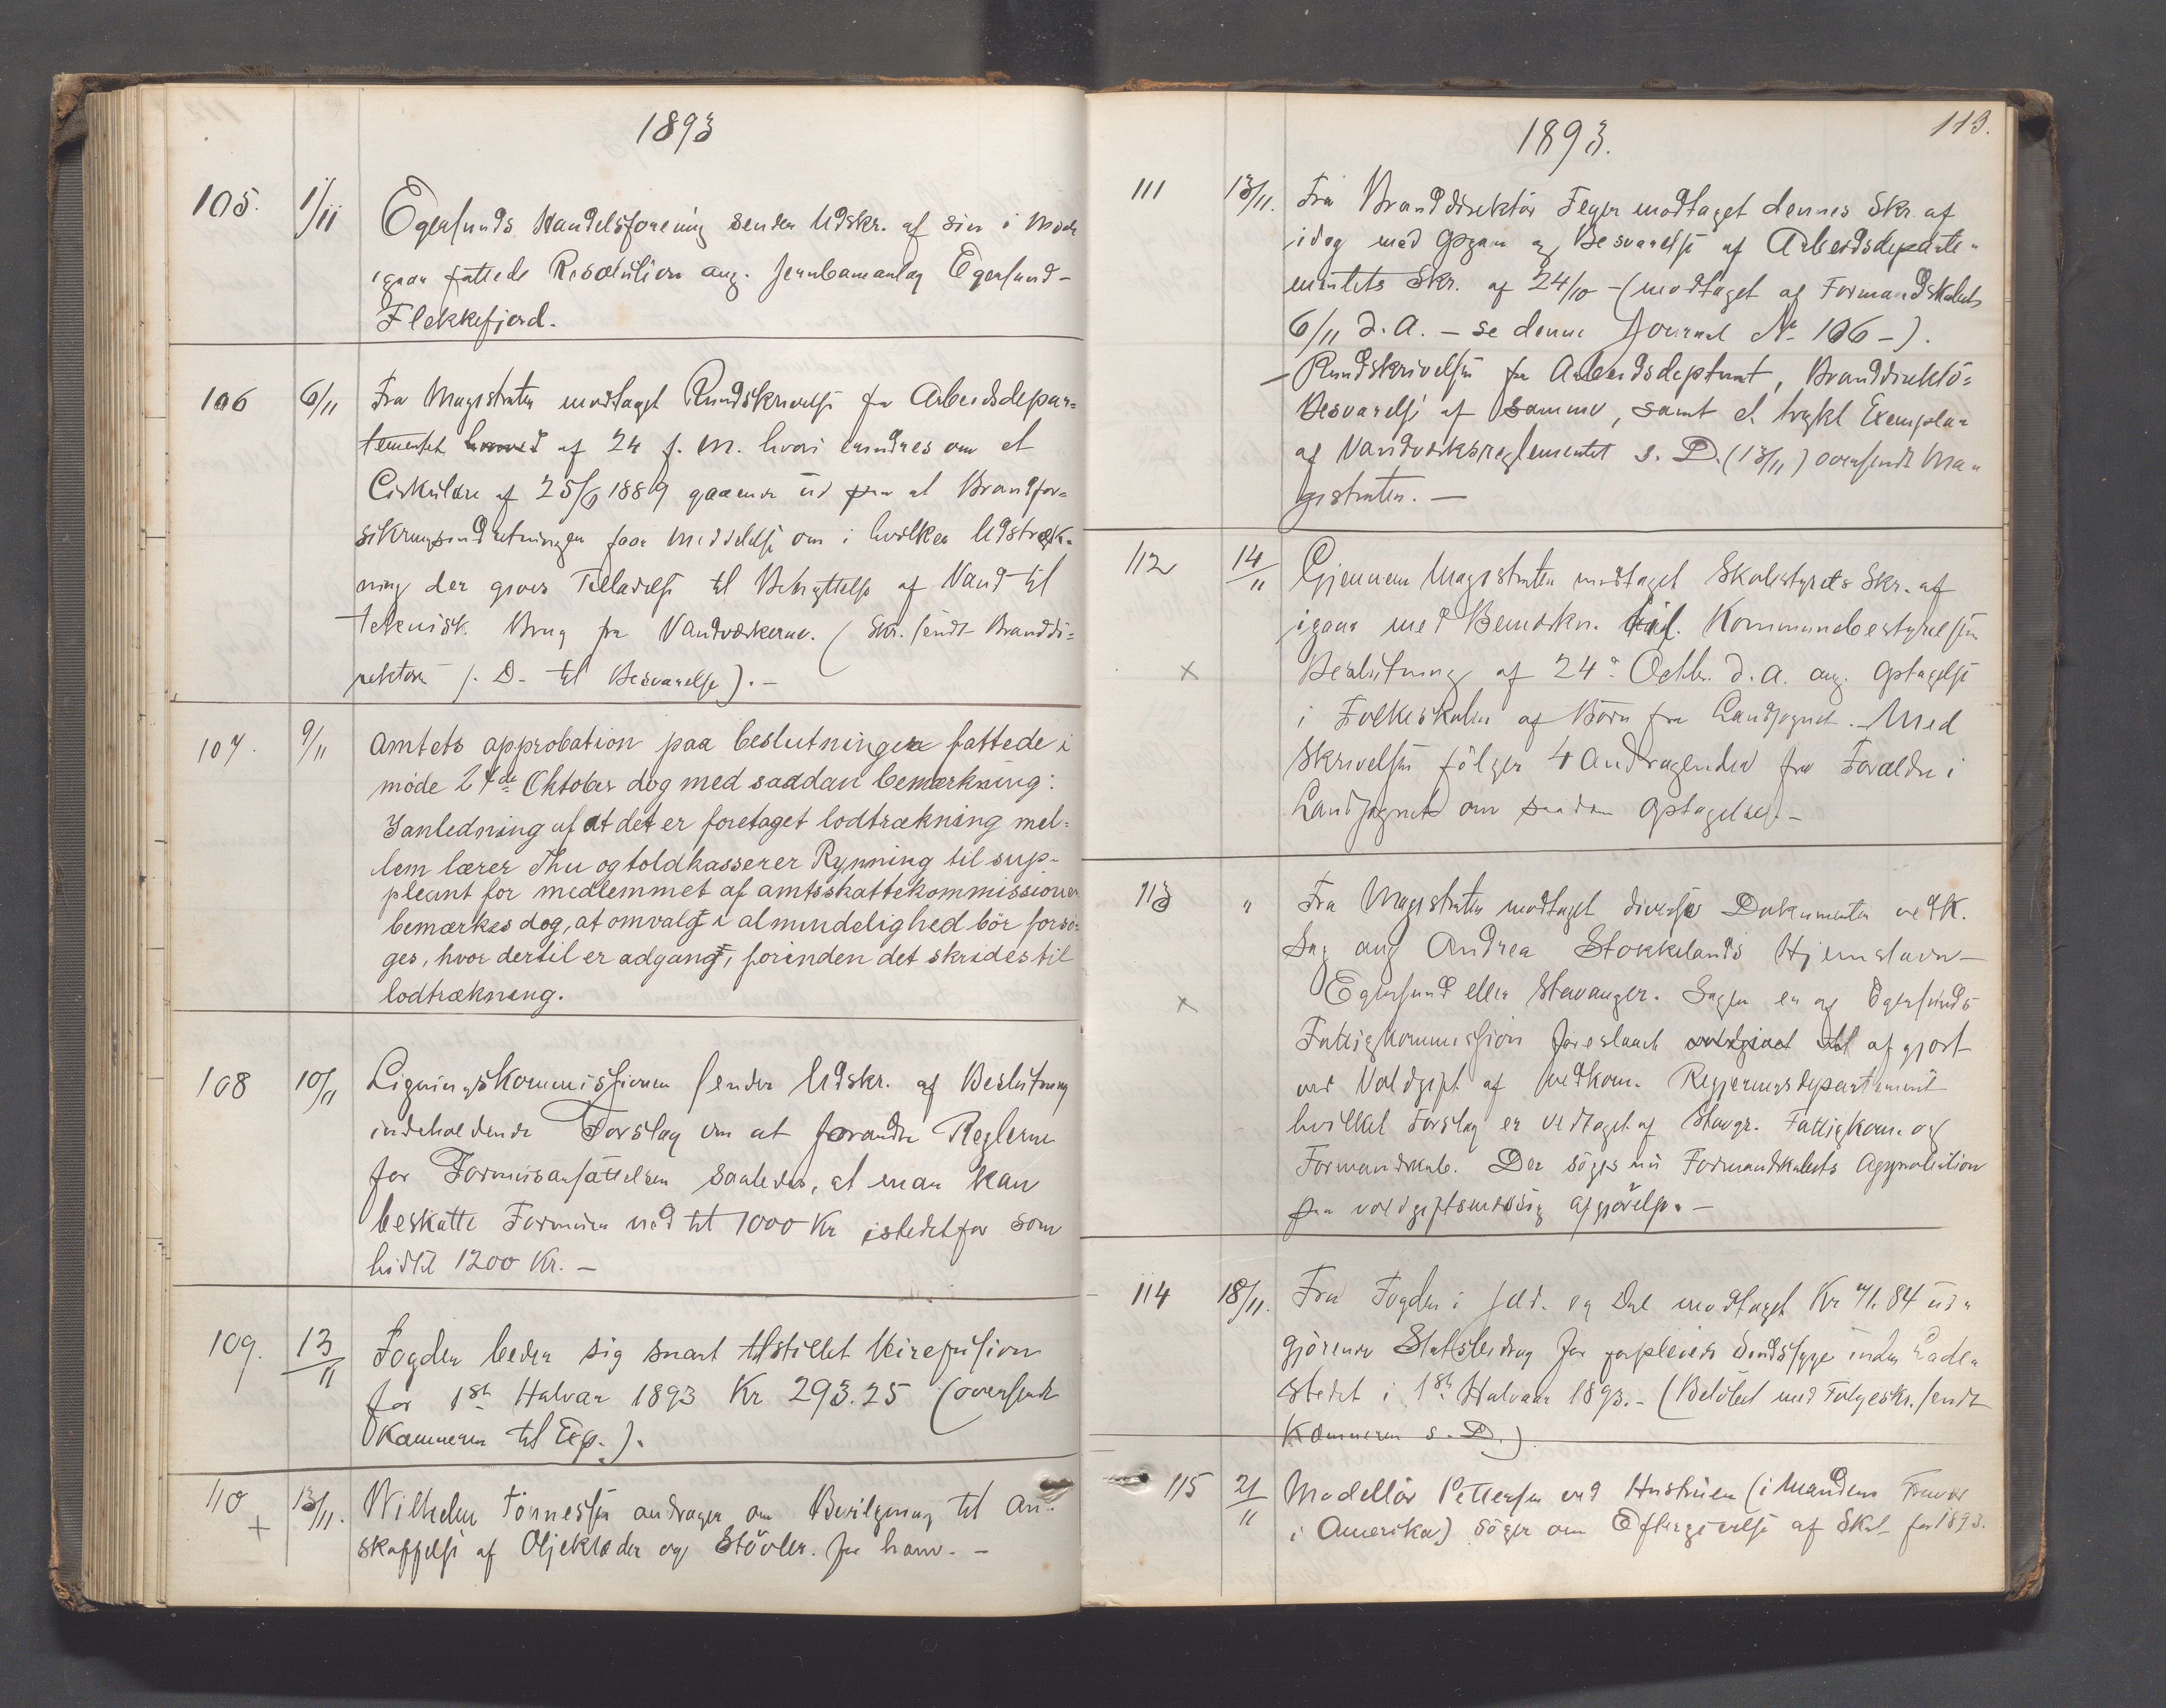 1893
105. 1/11 Egersunds Handelsforening sender Udskr. af sin i Møde
igaar fattede Resolution ang. Jernbaneanlæg Egersund-
Flekkefjord.
106 6/11 Fra Magistraten modtaget Rundskrivelse fra Arbeidsdepar=
tementet af 24 f. M. hvori erindres om et
Cirkulære af 25/6 1889 gaaende ud paa at Brandfor=
sikringsindretningen faar Meddelelse om i hvilken Udstræk=
ning der gives Tilladelse til Benyttelse af Vand til
teknisk Brug fra Vandværkerne. (Skr. sendt Branddi=
rektøren s. D. til Besvarelse). -
107. 9/11 Amtets approbation paa beslutningen fattede i
møde 24de Oktober dog med saadan bemærkning:
I anledning af at det er foretaget lodtrækning mel=
lem lærer Thu og toldkasserer Rynning til sup-
pleant for medlemmet af amtsskattekommissionen
bemærkes dog, at omvalg i almindelighed bör forsö=
ges, hvor dertil er adgang, forinden det skrides til
lodtrækning.
108 10/11 Ligningskommissionen sender Udskr. af Beslutning
indeholdende Forslag om at forandre Reglerne
for Formuesansættelsen saaledes, at man kan
beskatte Formuen ned til 1000 Kr istedetfor som
hidtil 1200 Kr. -
109. 13/11 Fogden beder sig snart tilstillet Veirefusion
for 1ste Halvaar 1893 Kr 293.25 (oversendt
Kæmneren til Exp.).
110 + 13/11. Wilhelm Tönnessen andrager om Bevilgning til An=
skaffelse af Oljeklæder og Stövler for ham. -
1893. 113.
111 13/11. Fra Branddirektör Feyer modtaget dennes Skr. af
idag med Opgave og Besvarelse af Arbeidsdeparte=
mentets Skr. af 24/10 - (modtaget af Formandskabet
6/11 d. A. - se denne Journal No 106 -).
- Rundskrivelsen fra Arbeidsdeptmt, Branddirektö=
Besvarelse af samme, samt et trykt Exemplar
af Vandværksreglementet s. D. (13/11) oversendt Ma=
gistraten. -
112 14/11 Gjennem Magistraten modtaget Skolestyrets Skr. af
igaar med Bemærkn. til Kommunebestyrelsens
× Beslutning af 24de Octbr. d. A. ang. Optagelse
i Folkeskolen af Börn fra Landsognet. - Med
Skrivelsen fölger 4 Andragender fra Forældre i
Landsognet om saadan Optagelse. -
113 " Fra Magistraten modtaget diverse Dokumenter vedk.
Sag ang Andrea Stokkelands Hjemstavn -
× Egersund eller Stavanger. Sagen er af Egersunds
Fattigkommission foreslaaet afgjort
ved Voldgift af vedkom. Regjeringsdepartement
hvilket Forslag er vedtaget af Stavgr. Fattigkom. og
Formandskab. Der söges nu Formandskabets Approbation
paa voldgiftsmæssig Afgjörelse. -
114 18/11. Fra Fogden i Jæd. og Dal modtaget Kr 84 ud=
gjörende Statsbidrag for forpleiede Sindssyge inden Lade=
stedet i 1ste Halvaar 1893. - (Belöbet med Fölgeskr. sendt
Kæmneren s. D.)
115 21/11 Modellör Pettersen ved Hustruen (i Mandens Fravær
i Amerika) söger om Eftergivelse af Skat for 1893.